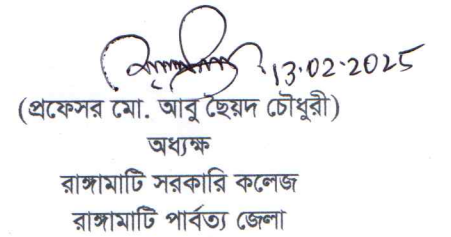 13.02.2025
(প্রফেসর মো. আবু ছৈয়দ চৌধুরী)
অধ্যক্ষ
রাঙ্গামাটি সরকারি কলেজ
রাঙ্গামাটি পার্বত্য জেলা